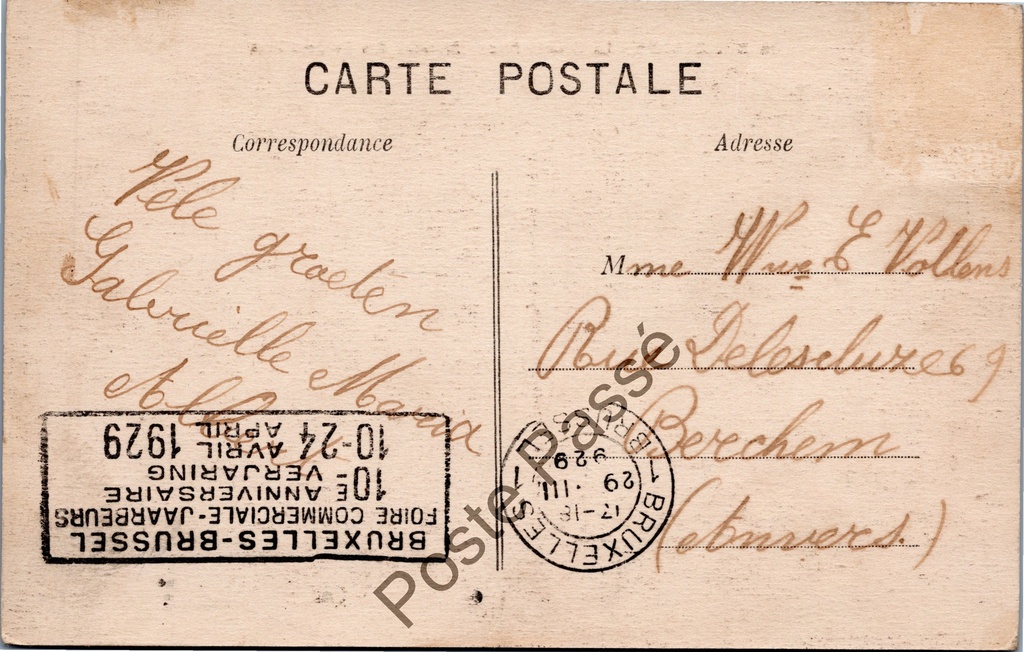 CARTE POSTALE
Correspondance
Vele groeten
Gabrielle Maria
Adresse
Mme Wwe E Vollens
Rue Delescluze 69
Berchem
(Anvers.)
BRUXELLES-BRUSSEL
FOIRE COMMERCIALE-JAARBEURS
10E ANNIVERSAIRE
10E VERJARING
10-24 AVRIL APRIL 1929
1 BRUXELLES 1 BRUSSEL
17-18
29 · III
929
Poste Passé